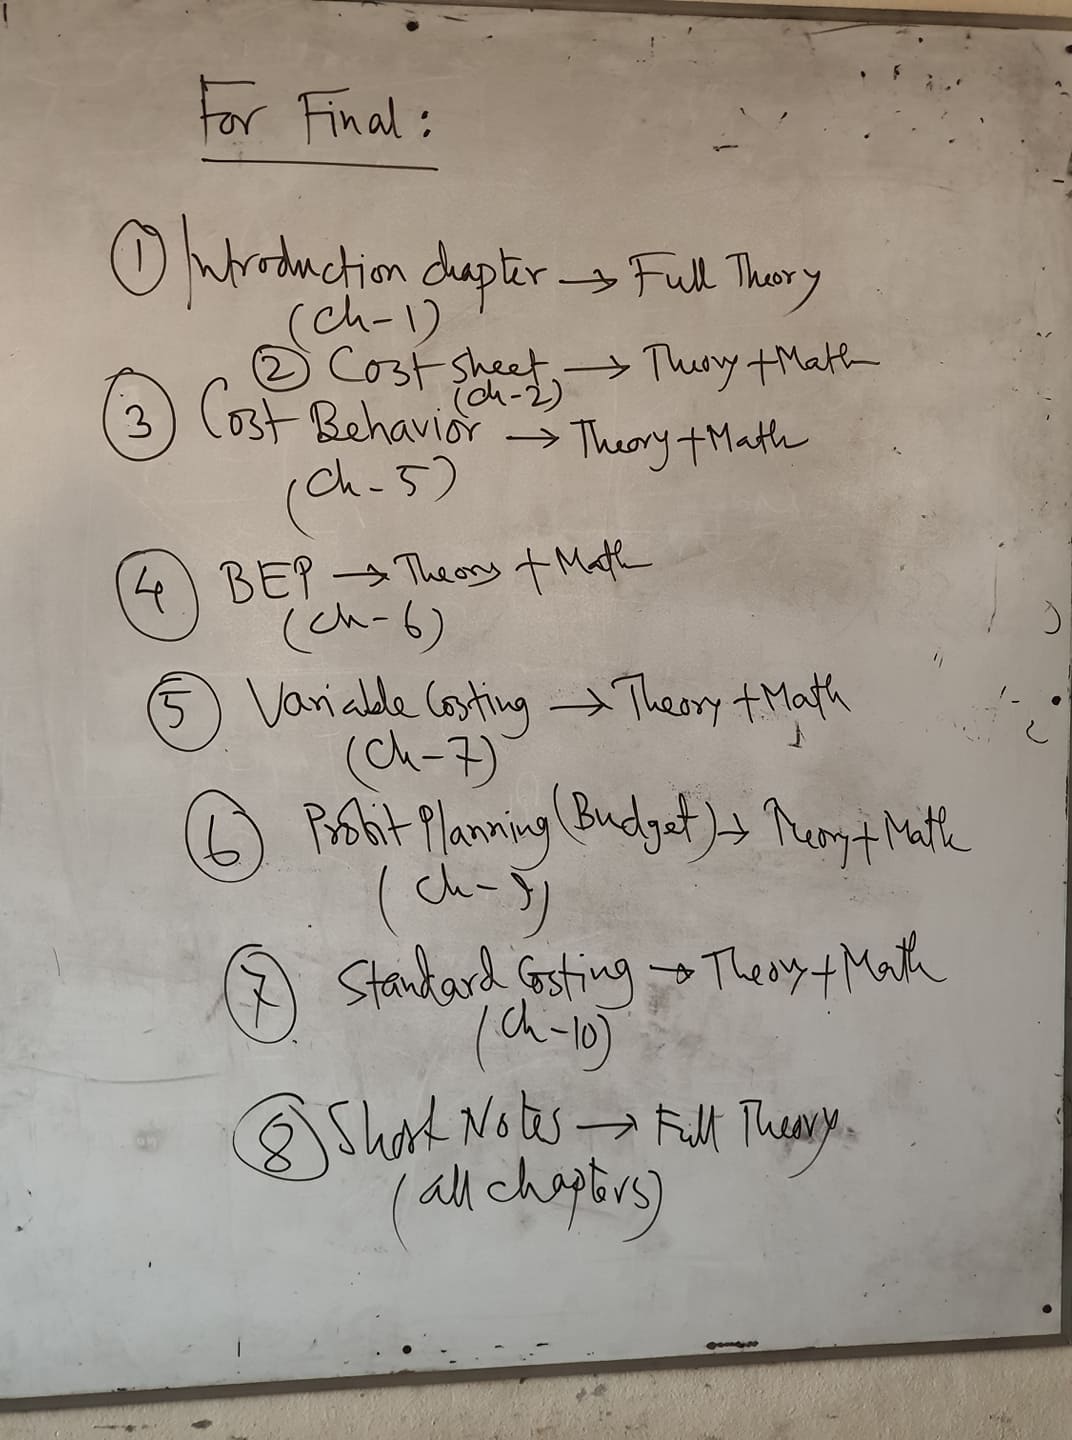 For Final :
① Introduction chapter → Full Theory
(Ch-1)
② Cost Sheet → Theory + Math
(Ch-2)
③ Cost Behavior → Theory + Math
(Ch-5)
④ BEP → Theory + Math
(Ch-6)
⑤ Variable Costing → Theory + Math
(Ch-7)
⑥ Profit Planning (Budget) → Theory + Math
(Ch-9)
⑦ Standard Costing → Theory + Math
(Ch-10)
⑧ Short Notes → Full Theory
(all chapters)